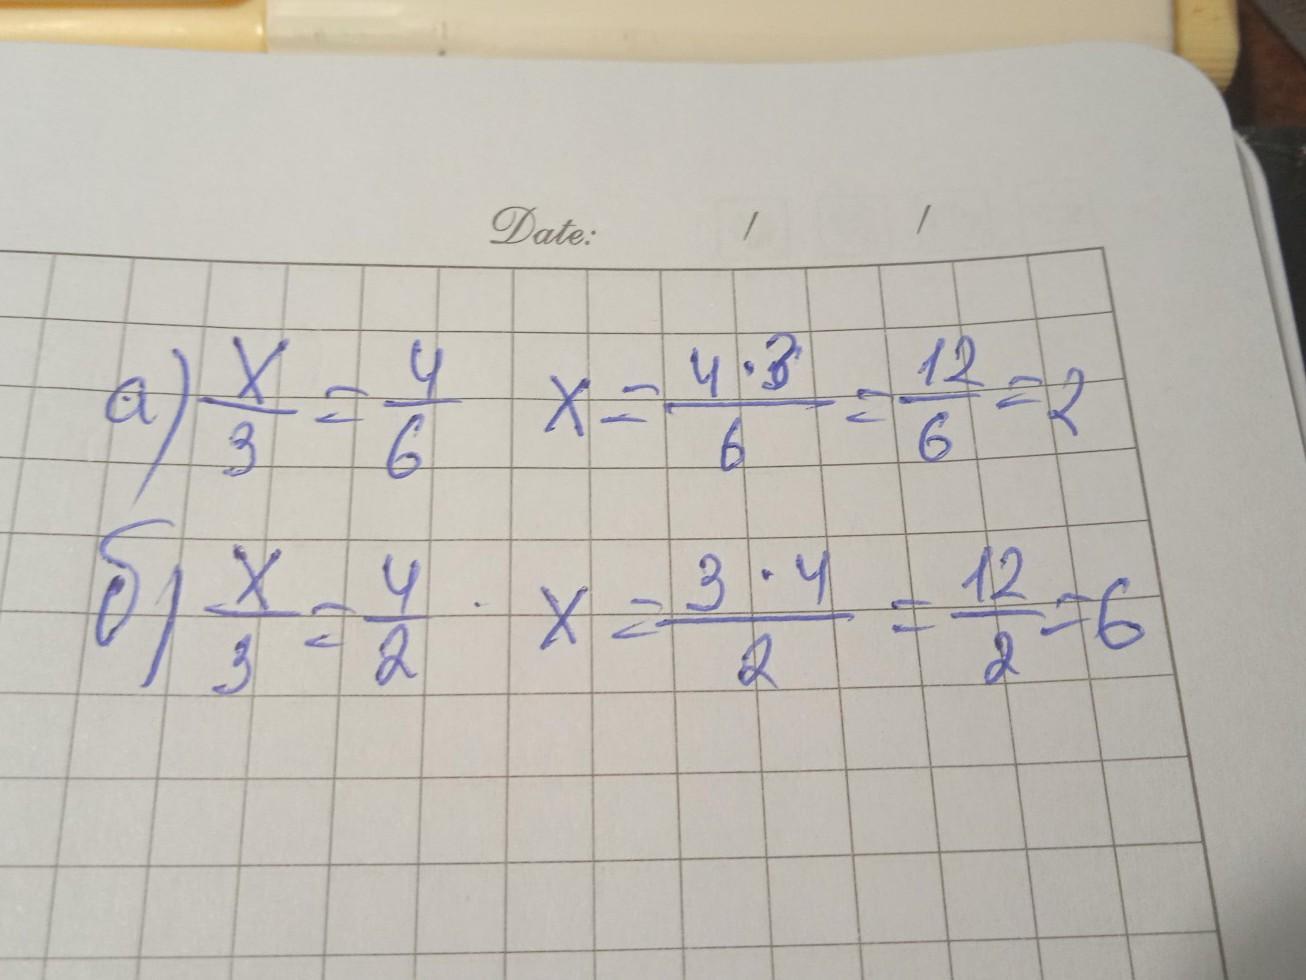 Date: / /
а) x/3 = 4/6 x = 4·3/6 = 12/6 = 2
б) x/3 = 4/2 · x = 3·4/2 = 12/2 = 6